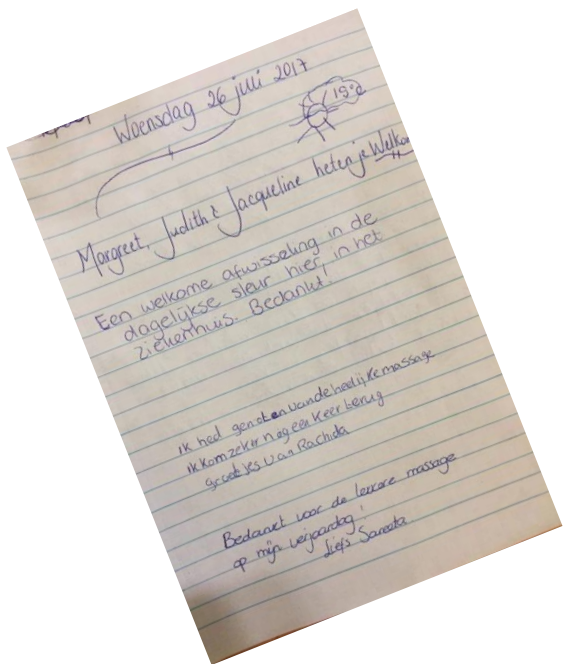 Woensdag 26 juli 2017
19°C
Margreet, Judith & Jacqueline heten je Welko
Een welkome afwisseling in de
dagelijkse sleur hier in het
ziekenhuis. Bedankt!
ik hed genoten van de heelijke massage
ik kom zeker nog een keer terug
groetjes van Rachida
Bedankt voor de lekkere massage
op mijn verjaardag!
Liefs Sareeta